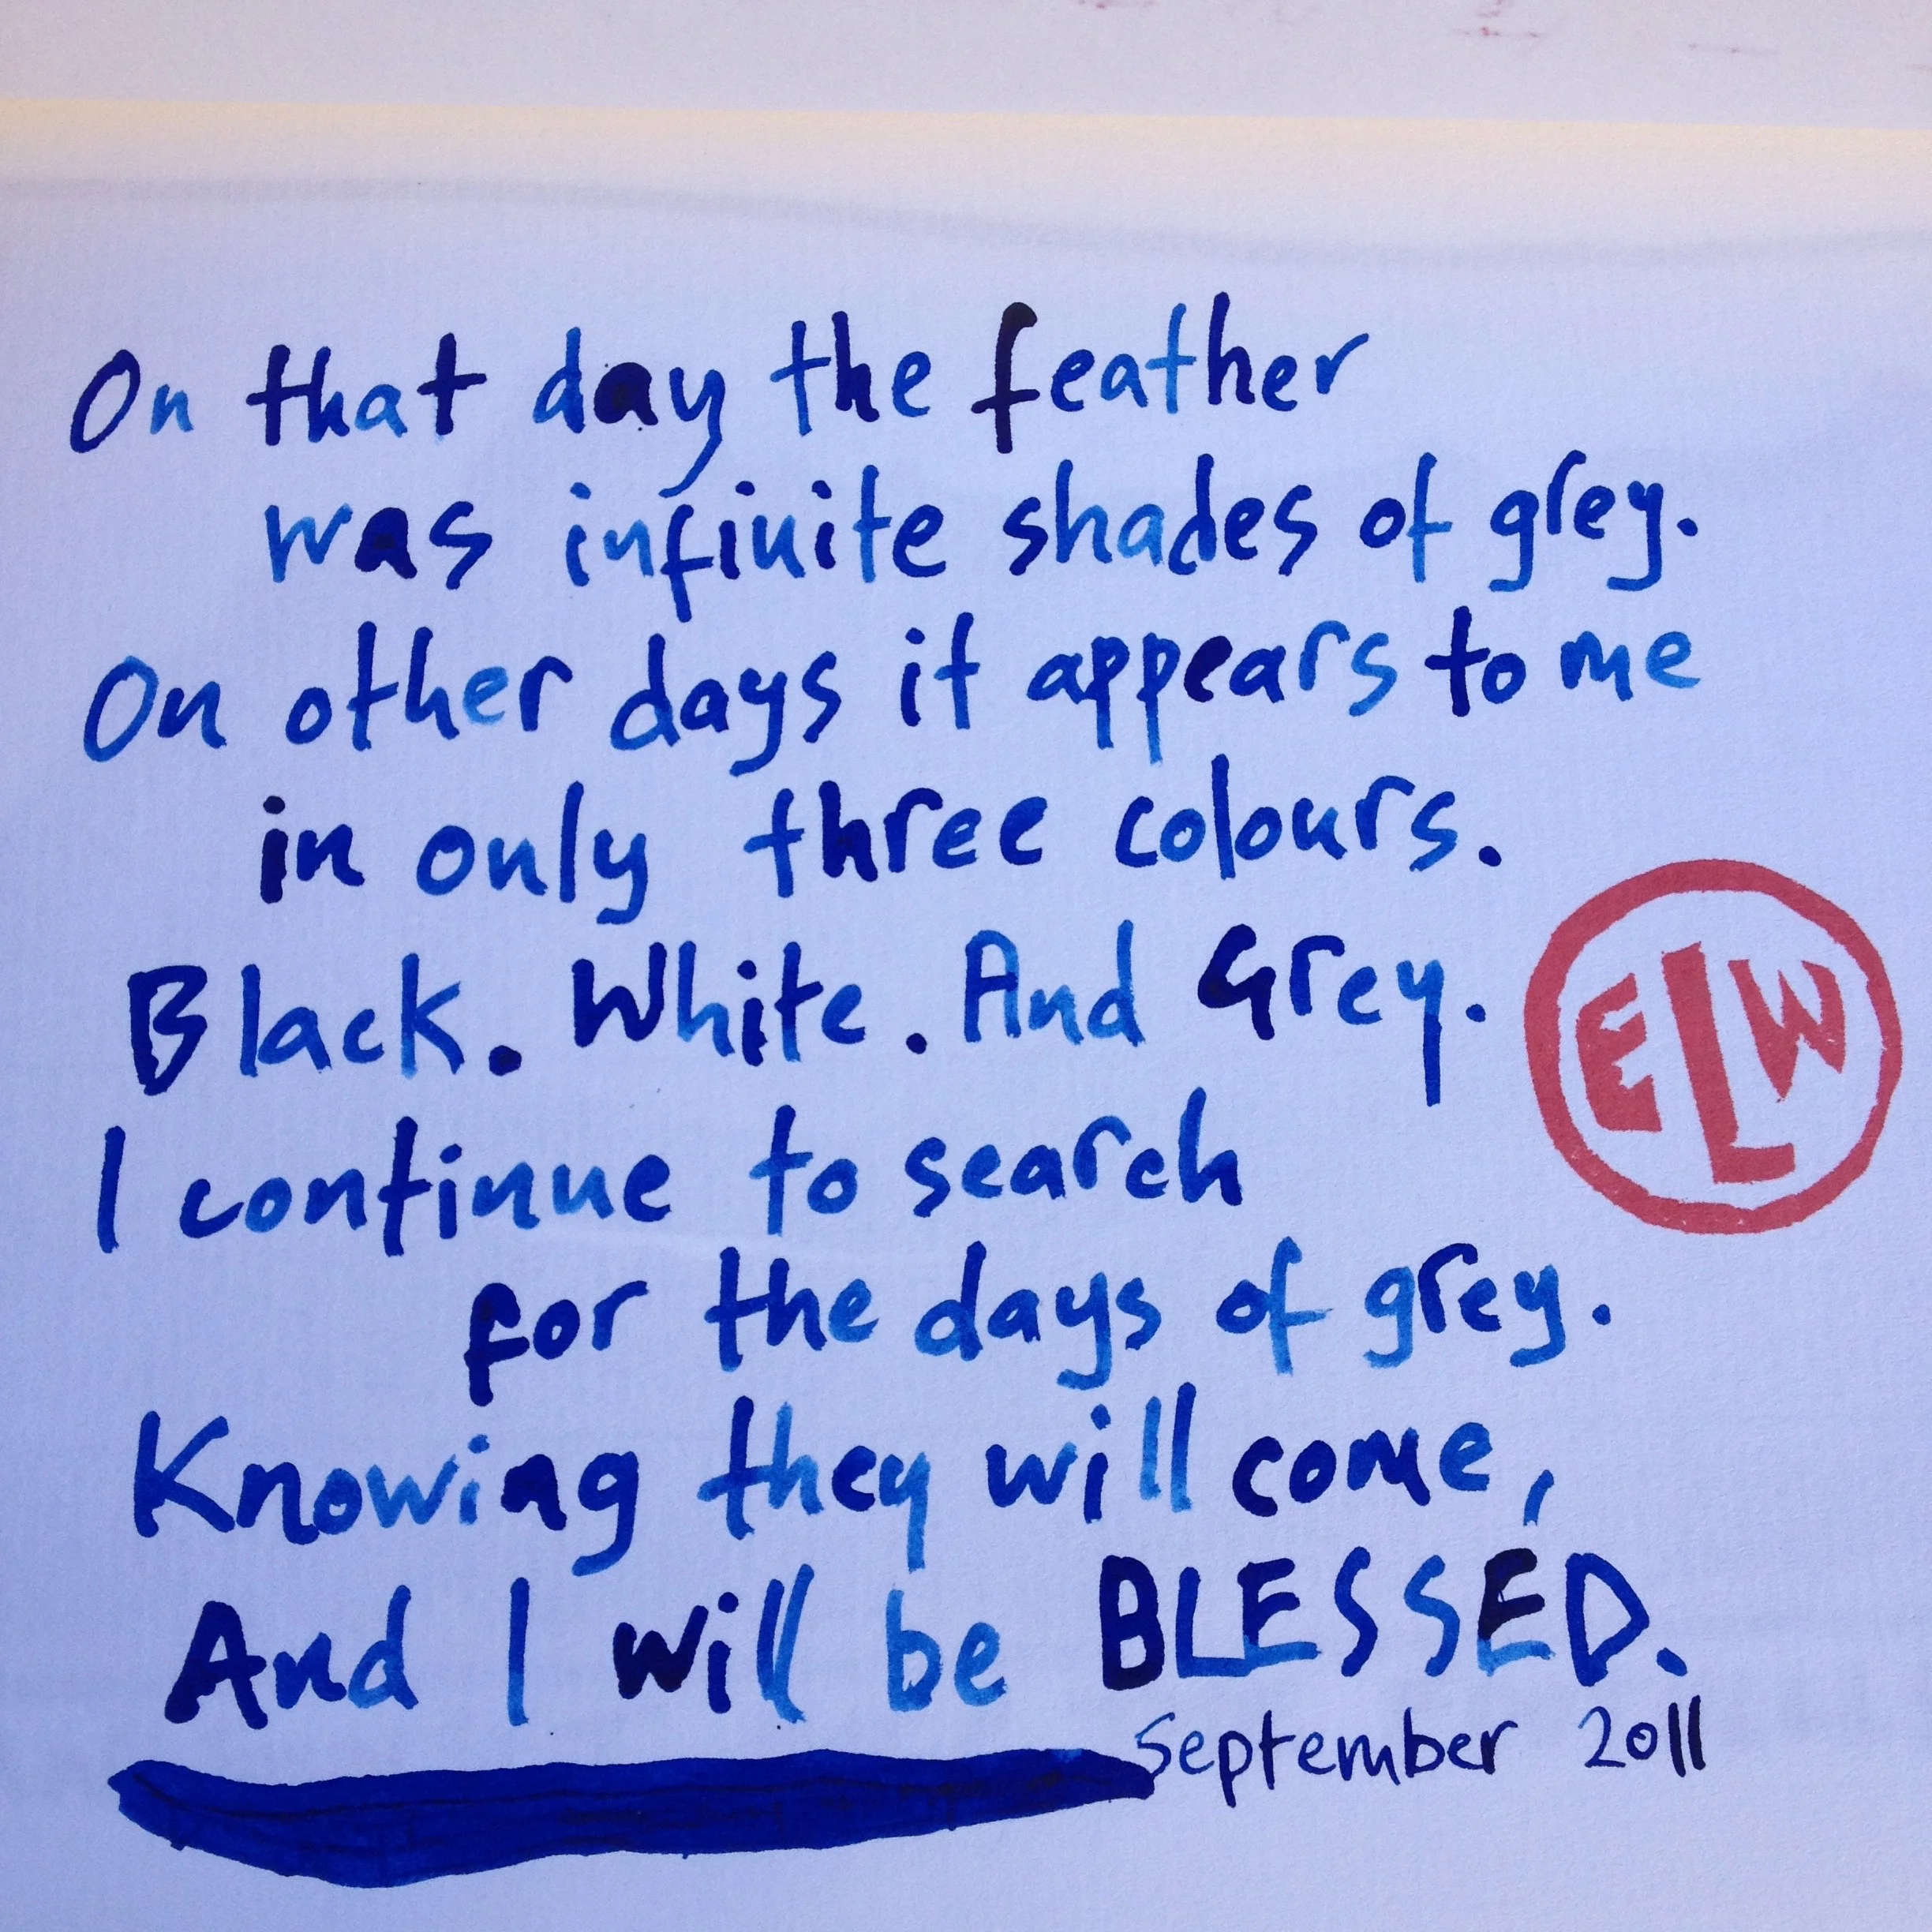 On that day the feather
was infinite shades of grey.
On other days it appears to me
in only three colours.
Black. White. And Grey.
ELW
I continue to search
for the days of grey.
Knowing they will come,
And I will be BLESSED.
September 2011